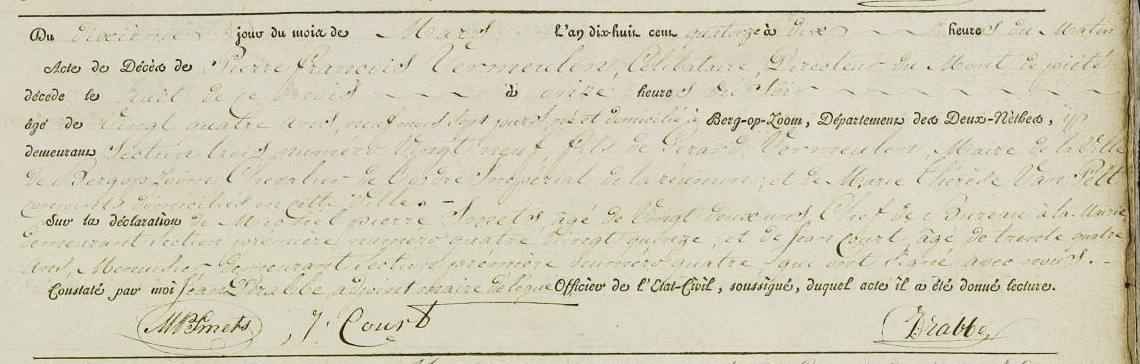 Du dixieme jour du mois de Mars l'an dix-huit cent quatorze à dix heures du Matin
Acte de Décès de Pierre François Vermeulen, Célibataire, Directeur du Mont de piété
décédé le huit de ce mois à onze heures du Soir
âgé de Vingt quatre ans, neuf mois sept jours né et domicilié à Berg-op-Zoom, Département des Deux-Nèthes, y
demeurant Section trois numero Vingt neuf, fils de Gerard Vermeulen, Maire de la Ville
de Bergopzoom, Chevalier de l'ordre Impérial de la reunion, et de Marie Thérèse Van Pelt
conjoints domiciliés en cette Ville. -
Sur la déclaration de Michiel pierre Smets, âgé de Vingt deux ans, Chef de Bureau à la Mairie
demeurant section première numero quatre Vingt quinze, et de Jean Court, âgé de trente quatre
ans, Menuisier demeurant section première numero quatre qui ont signé avec nous. -
Constaté par moi Jean Drabbe, adjoint maire delegué Officier de l'Etat-Civil, soussigné, duquel acte il a été donné lecture.
MPSmets J: Court Drabbe